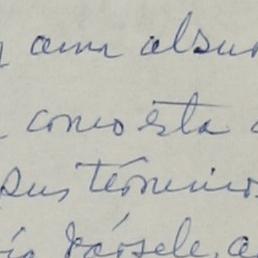 aun absur
como ésta
sus términos
dársele a